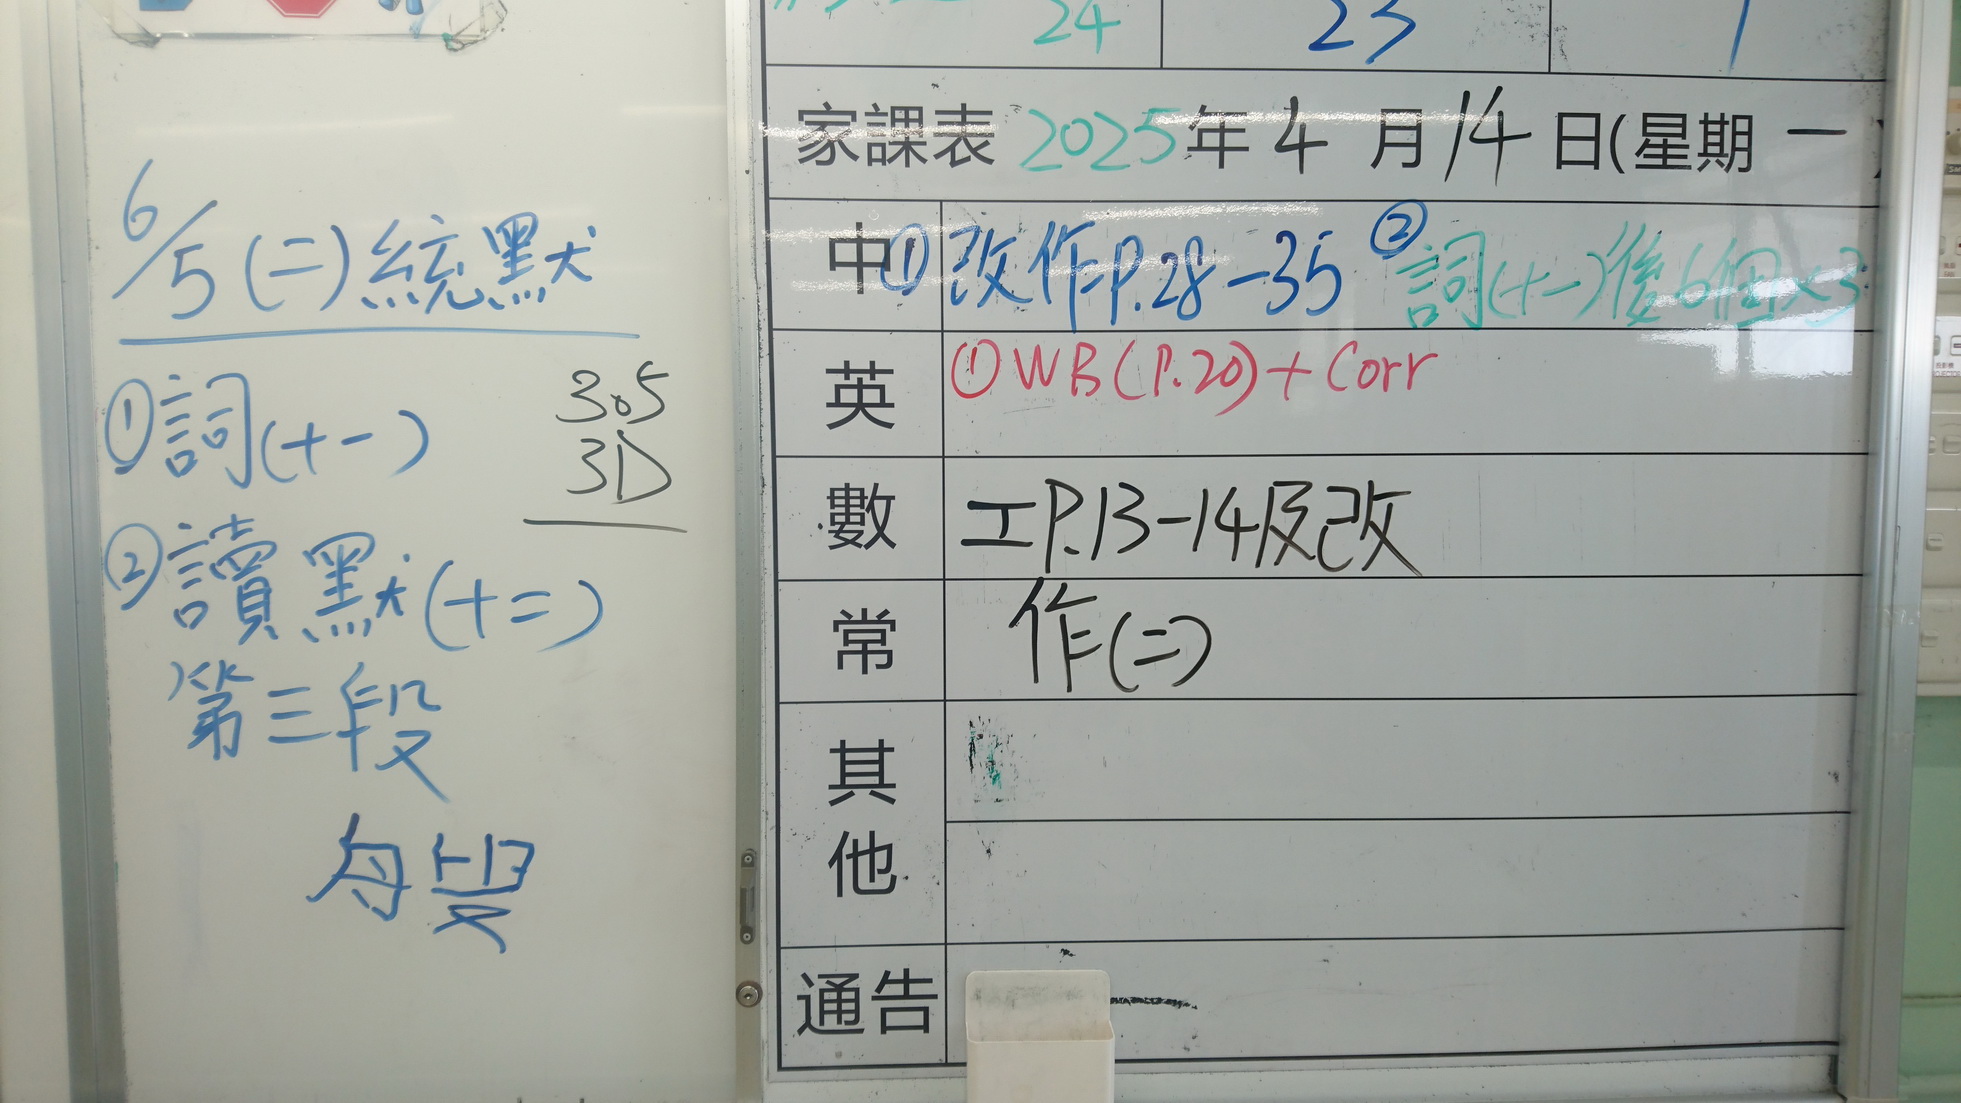 24 23 1
家課表 2025年4月14日(星期一)
6/5(二)統默
①詞(十一)
305
3D
②讀默(十二)
第三段
中 ①改作P.28-35 ②詞(十一)後6個x3
英 ①WB(P.20)+Corr
數 工P.13-14及改
常 作(二)
其他
通告